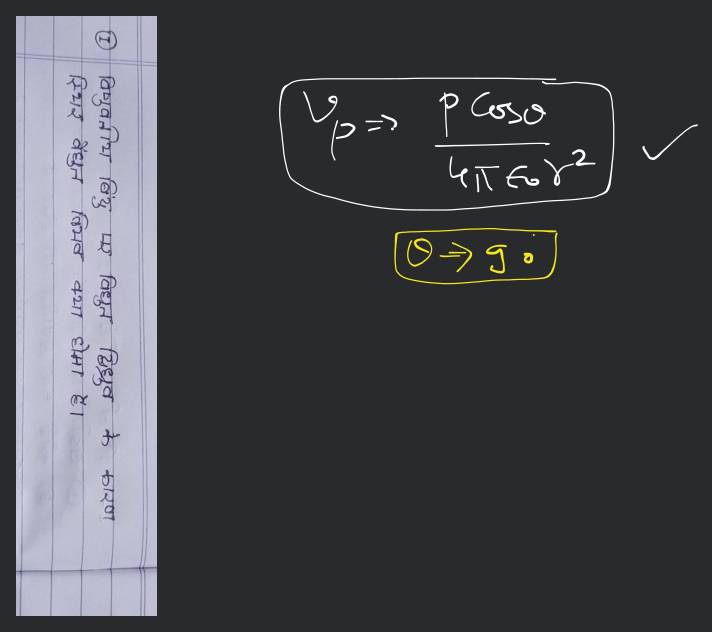 ① विधुवतीय बिंदु पर विद्युत द्विध्रुव के कारण
स्थिर वैधुत विभव क्या होगा है।
V_p => p cosθ / 4π ε0 r² ✓
θ → 90